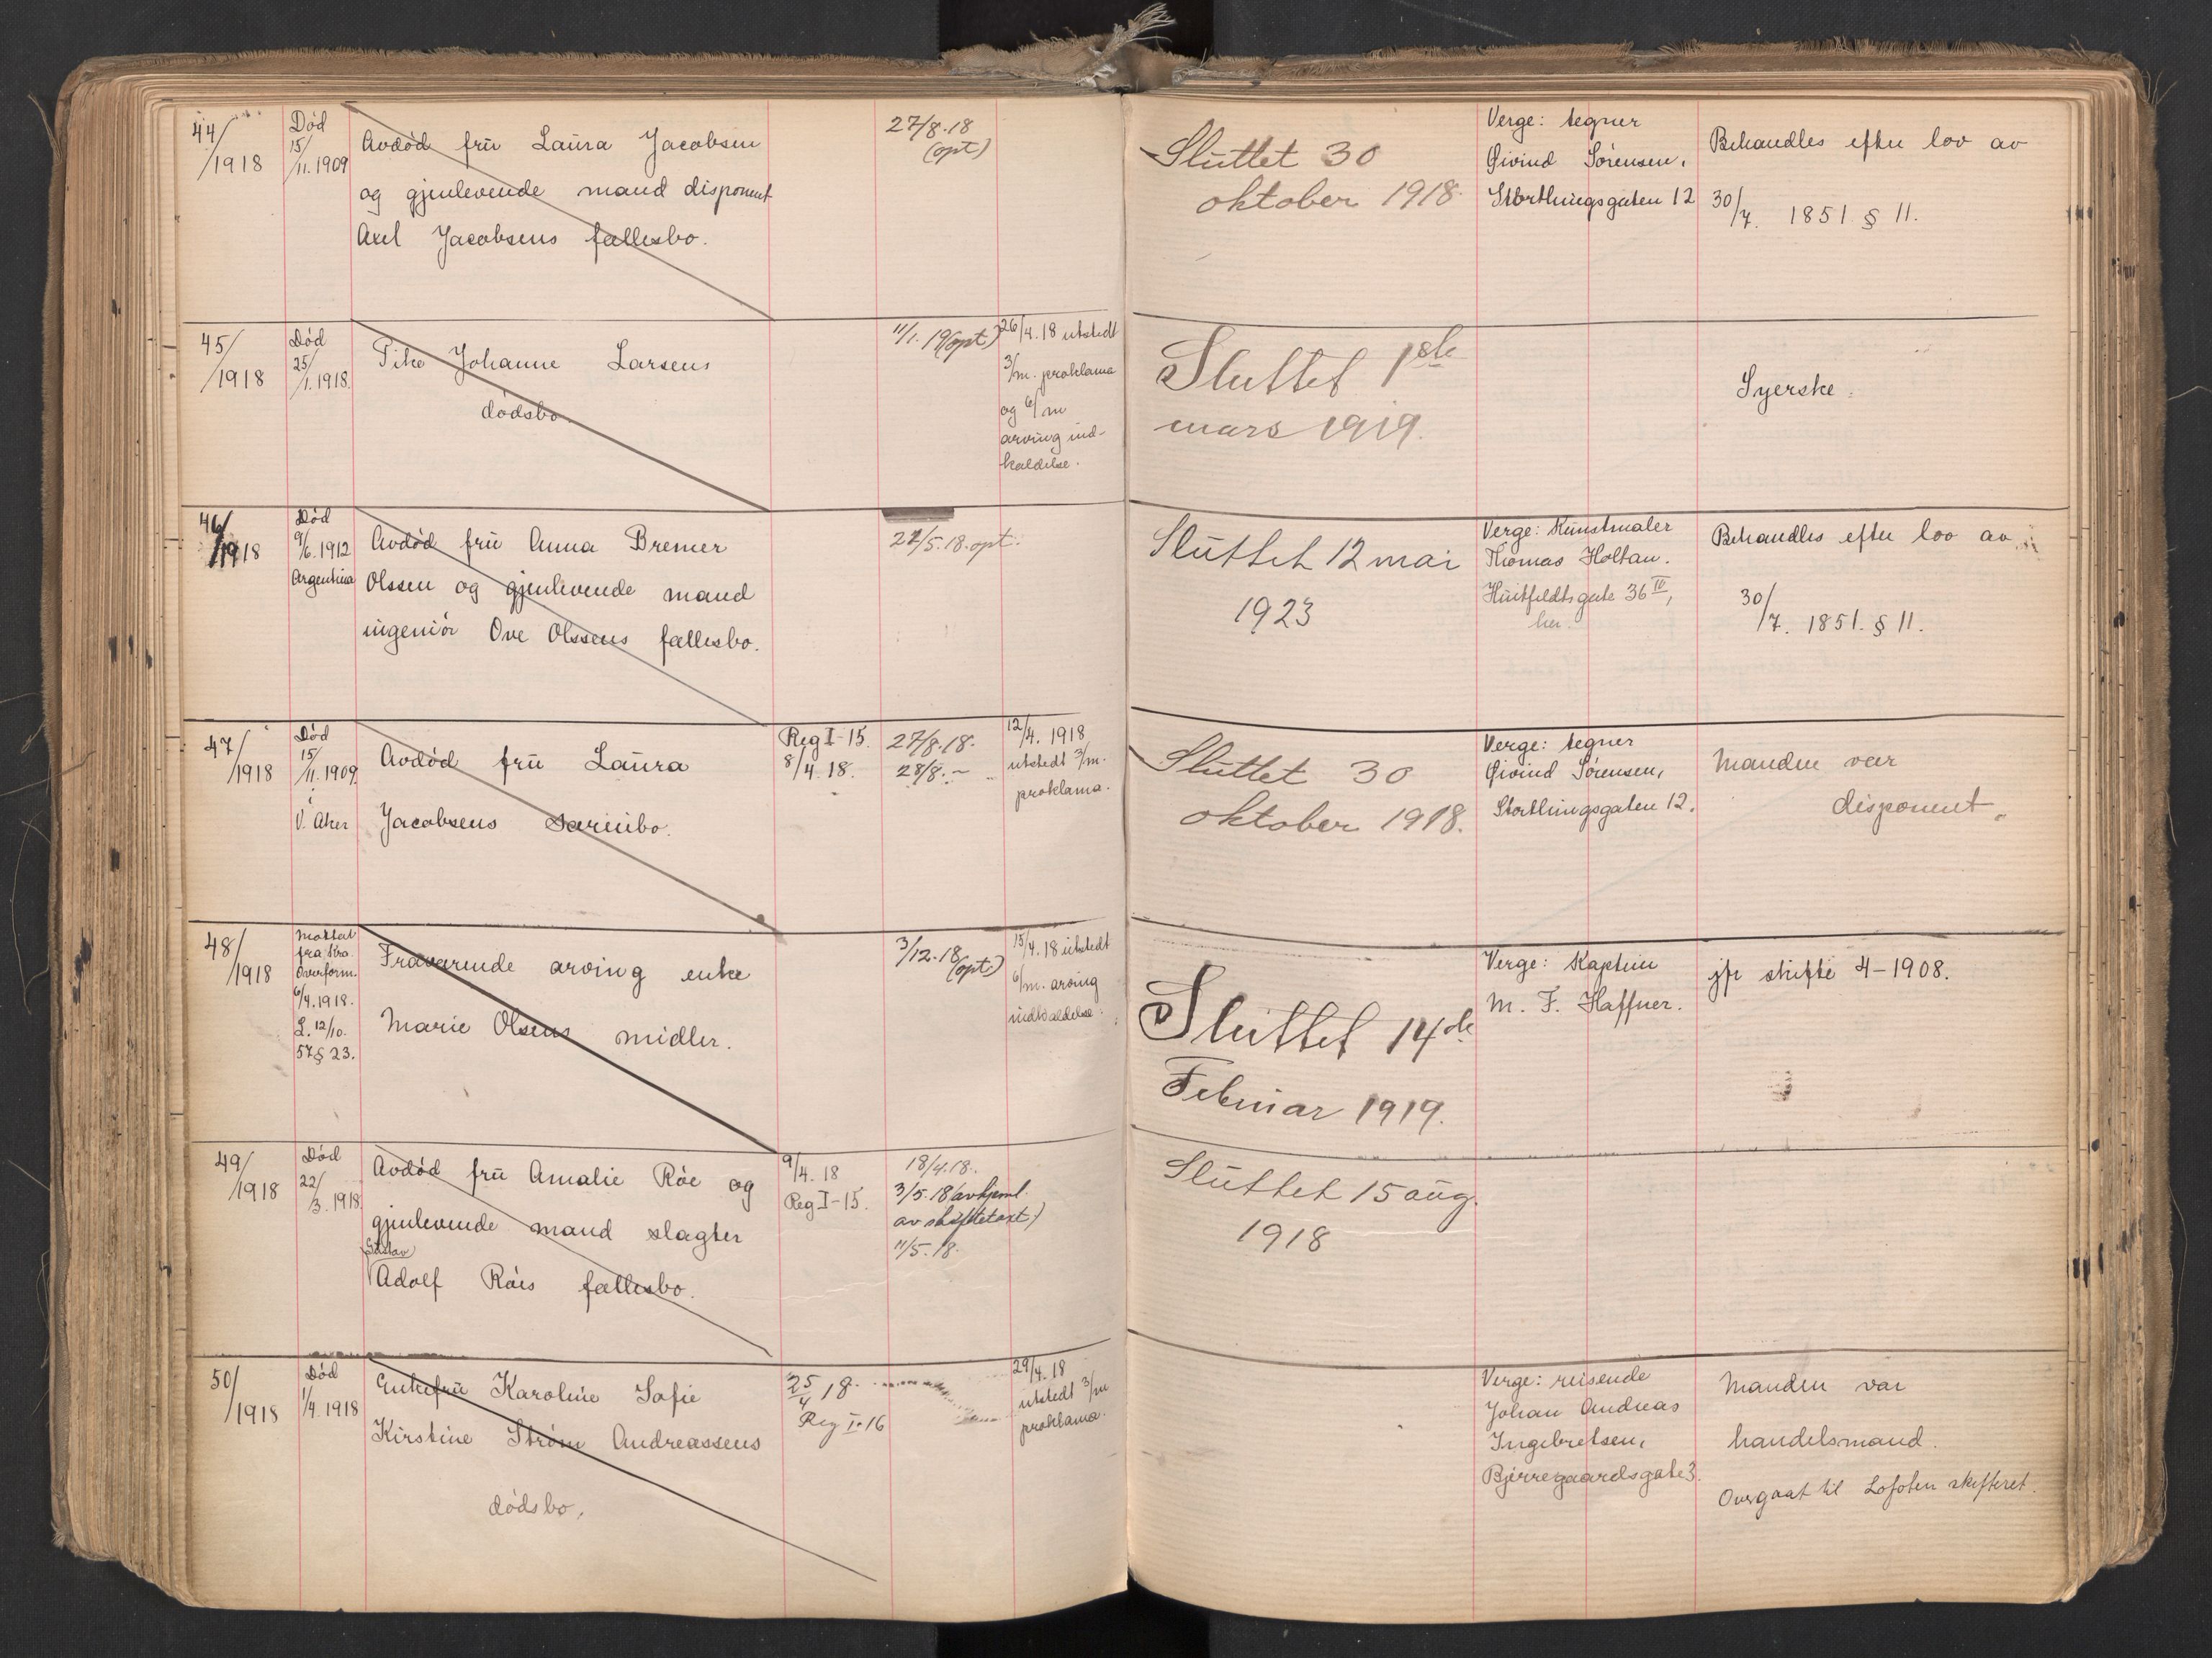 44/1918
Død
15/11.1909
Avdød frū Laūra Jacobsen
og gjenlevende mand disponent
Axel Jacobsens fællesbo.
27/8.18
(opt)
Slūttet 30
oktober 1918.
Verge: tegner
Øivind Sørensen,
Storthingsgaten 12
Behandles efter lov av
30/7. 1851 § 11.
45/1918
Død
25/1.1918.
Pike Johanne Larsens
dødsbo.
11/1.19(opt)
26/4.18 utstedt
3/m. proklama
og 6/m
arving ind-
kaldelse.
Sluttet 1ste
mars 1919.
Syerske.
46/1918
Død
9/6.1912
Argentina
Avdød frū Anna Bremer
Olssen og gjenlevende mand
ingeniør Ove Olssens fællesbo.
22/5.18.opt.
Slūttet 12 mai
1923
Verge: Kūnstmaler
Thomas Holtan.
Hūitfeldtsgate 36 IV,
her.
Behandles efter lov av
30/7. 1851. § 11.
47/1918
Død
15/11.1909
i
V. Aker
Avdød frū Laūra
Jacobsens særeibo.
Reg I-15.
8/4.18.
27/8.18.
28/8.-
12/4. 1918
utstedt 3/m.
proklama.
Slūttet 30
oktober 1918.
Verge: tegner
Øivind Sørensen,
Storthingsgaten 12.
Manden var
disponent.
48/1918
Mottat
fra Kra.
Overform.
6/4.1918.
L. 12/10.
57 § 23.
Fraværende arving enke
Marie Olsens midler.
3/12.18
(opt.)
15/4.18 utstedt
6/m. arving
indkaldelse.
Slūttet 14de
Februar 1919.
Verge: Kaptein
M. F. Haffner.
jfr skifte 4-1908.
49/1918
Død
22/3.1918.
Avdød frū Amalie Røe og
gjenlevende mand slagter
Gūstav
Adolf Røes fællesbo.
9/4.18
Reg I-15.
18/4.18.
3/5.18(avhjeml.
av skiftetaxt.)
11/5.18.
Slūttet 15 aūg.
1918
50/1918
Død
1/4.1918
Enkefrū Karoline Sofie
Kirstine Strøm Andreassens
dødsbo.
25/4 18.
Reg I-16
29/4.18
utstedt 3/m
proklama.
Verge: reisende
Johan Andreas
Ingebretsen,
Bjerregaardsgate 3.
Manden var
handelsmand.
Overgaat til Lofoten skifteret.